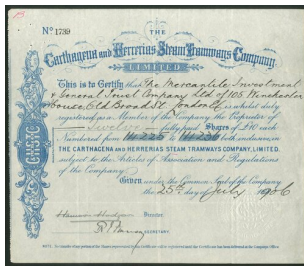 Nº 1739
THE
Carthagena and Herrerias Steam Tramways Company,
LIMITED.
This is to Certify that The Mercantile Investment
& General Trust Company Ltd of 103 Winchester
House Old Broad St. London E.C. is which duly
registered as a Member of the Company, the Proprietor of
Twelve fully paid Shares of £10 each
Numbered from to both inclusive, in
THE CARTHAGENA AND HERRERIAS STEAM TRAMWAYS COMPANY, LIMITED,
subject to the Articles of Association and Regulations
of the Company.
Given under the Common Seal of the Company
the 25th day of July 1906
Director
SECRETARY.